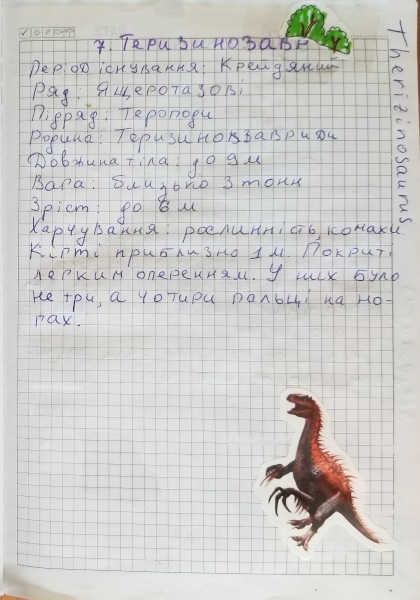 7. Теризинозавн
Therizinosaurus
Період існування: Крейдяний
Ряд: Ящеротазові
Підряд: Тероподи
Родина: Теризинозавриди
Довжина тіла: до 9м
Вага: близько 3 тонн
Зріст: до 6 м
Харчування: рослинність, комахи
Кігті приблизно 1 м. Покриті
легким оперенням. У них було
не три, а чотири пальці на но-
гах.